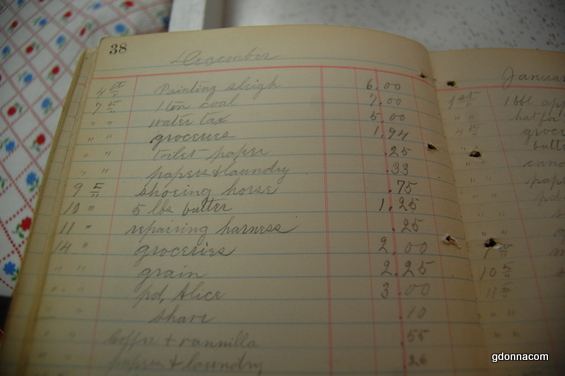 38
December
4th Painting sleigh 6.00
7th 1 ton coal 7.00
" " water tax 5.00
" " groceries 1.94
" " toilet paper .25
" " papers & laundry .33
9th shoeing horse .75
10 " 5 lbs butter 1.25
11 " repairing harness .25
14 " groceries 2.00
" " grain 2.25
" " pd, Alice 3.00
" " shave .10
" " Coffee & vanilla .55
" " papers & laundry .26
Januar
1st 1 bbl app
" "
4th groce
10th
gdonnacom